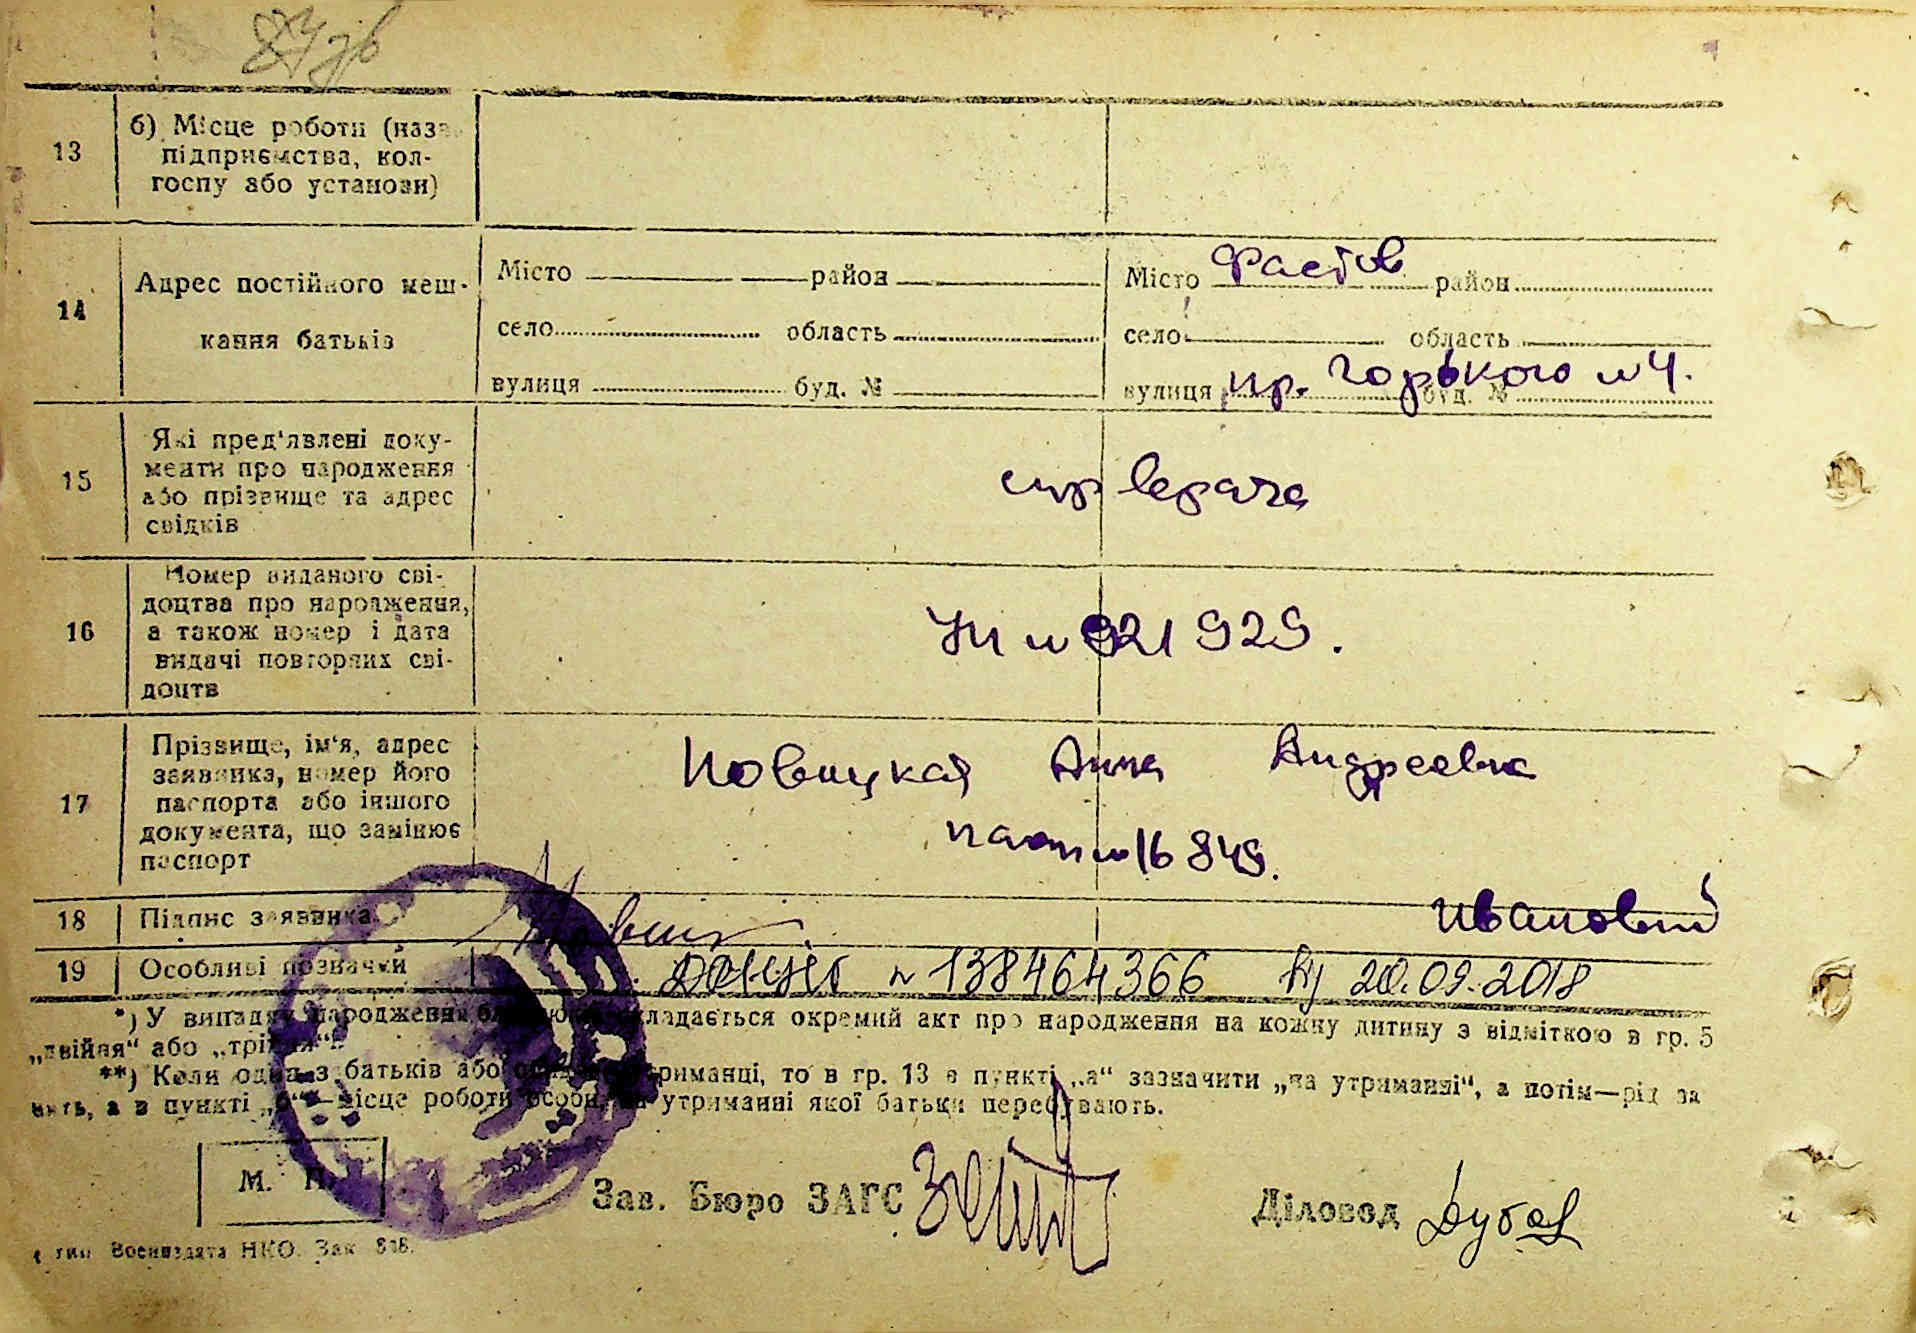 13
б) Місце роботи (назва
підприємства, кол-
госпу або установи)
14
Адрес постійного меш-
кання батьків
Місто район
село область
вулиця буд. №
Місто Фастов район
село область
вулиця пр. Горького № 4. буд. №
15
Які пред'явлені доку-
менти про народження
або прізвище та адрес
свідків
спр врача
16
Номер виданого сві-
доцтва про народження,
а також номер і дата
видачі повторних сві-
доцтв
№ 921929.
17
Прізвище, ім'я, адрес
заявника, номер його
паспорта або іншого
документа, що замінює
паспорт
Новицкая Анна Андреевна
пасп № 16849.
18
Підпис заявника
Ивановый
19
Особливі позначки
№ 138464366 20.09.2018
*) У випадку народження близнюків складається окремий акт про народження на кожну дитину з відміткою в гр. 5
„двійня“ або „трійня“.
**) Коли один з батьків або на утриманні, то в гр. 13 в пункті „а“ зазначити „на утриманні“, а потім—рід за
нять, а в пункті „б“—місце роботи особи, на утриманні якої батьки перебувають.
М. П.
Зав. Бюро ЗАГС
Діловод
тип Воениздата НКО. Зак 818.